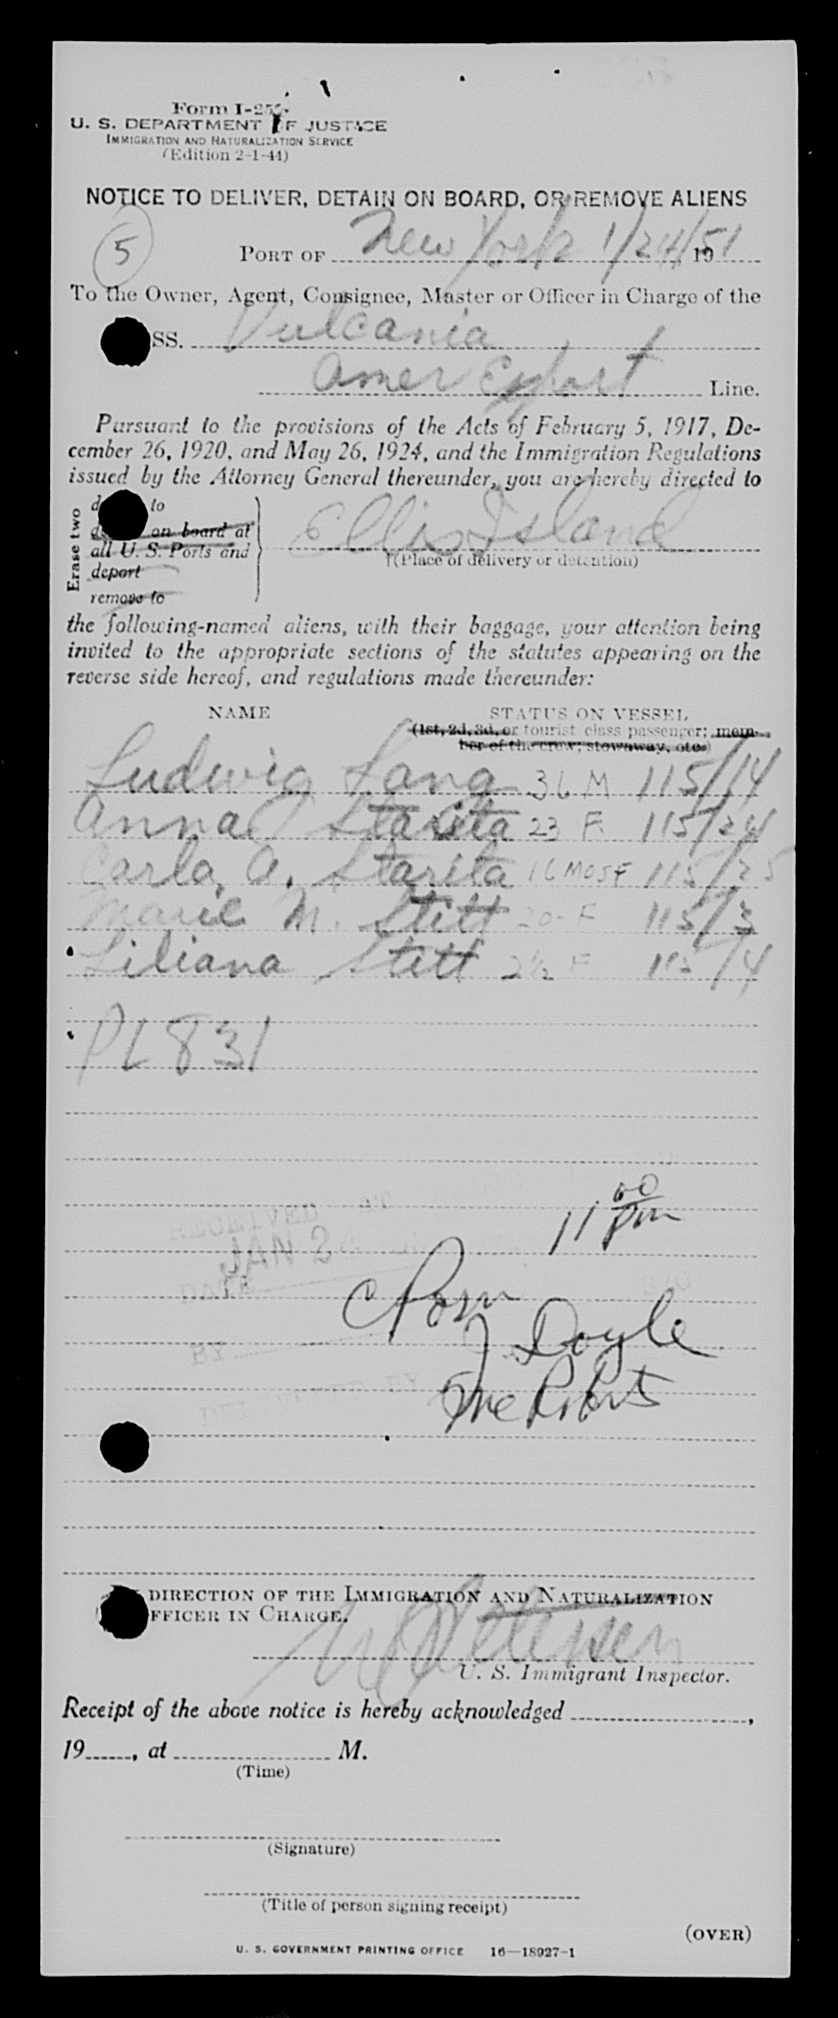 Form I-259
U. S. DEPARTMENT OF JUSTICE
IMMIGRATION AND NATURALIZATION SERVICE
(Edition 2-1-44)
NOTICE TO DELIVER, DETAIN ON BOARD, OR REMOVE ALIENS
5
PORT OF New York 1/24/51 19
To the Owner, Agent, Consignee, Master or Officer in Charge of the
SS. Vulcania
Amer Export Line.
Pursuant to the provisions of the Acts of February 5, 1917, De-
cember 26, 1920, and May 26, 1924, and the Immigration Regulations
issued by the Attorney General thereunder, you are hereby directed to
Erase two
to
on board at
all U. S. Ports and
deport
remove to
Ellis Island
†(Place of delivery or detention)
the following-named aliens, with their baggage, your attention being
invited to the appropriate sections of the statutes appearing on the
reverse side hereof, and regulations made thereunder:
NAME STATUS ON VESSEL
(1st, 2d, 3d, or tourist class passenger; mem-
ber of the crew; stowaway, etc.)
Ludwig Lang 36 M 115/14
Anna Starita 23 F. 115/24
Carla A. Starita 16 MOS F 115/25
Marie M. Stitt 20- F 115/3
Liliana Stitt 2½ F 115/4
PL 831
11 00 pm
J Doyle
McRoberts
DIRECTION OF THE IMMIGRATION AND NATURALIZATION
FFICER IN CHARGE.
Petersen
U. S. Immigrant Inspector.
Receipt of the above notice is hereby acknowledged ,
19 , at M.
(Time)
(Signature)
(Title of person signing receipt)
(OVER)
U. S. GOVERNMENT PRINTING OFFICE 16—18927-1